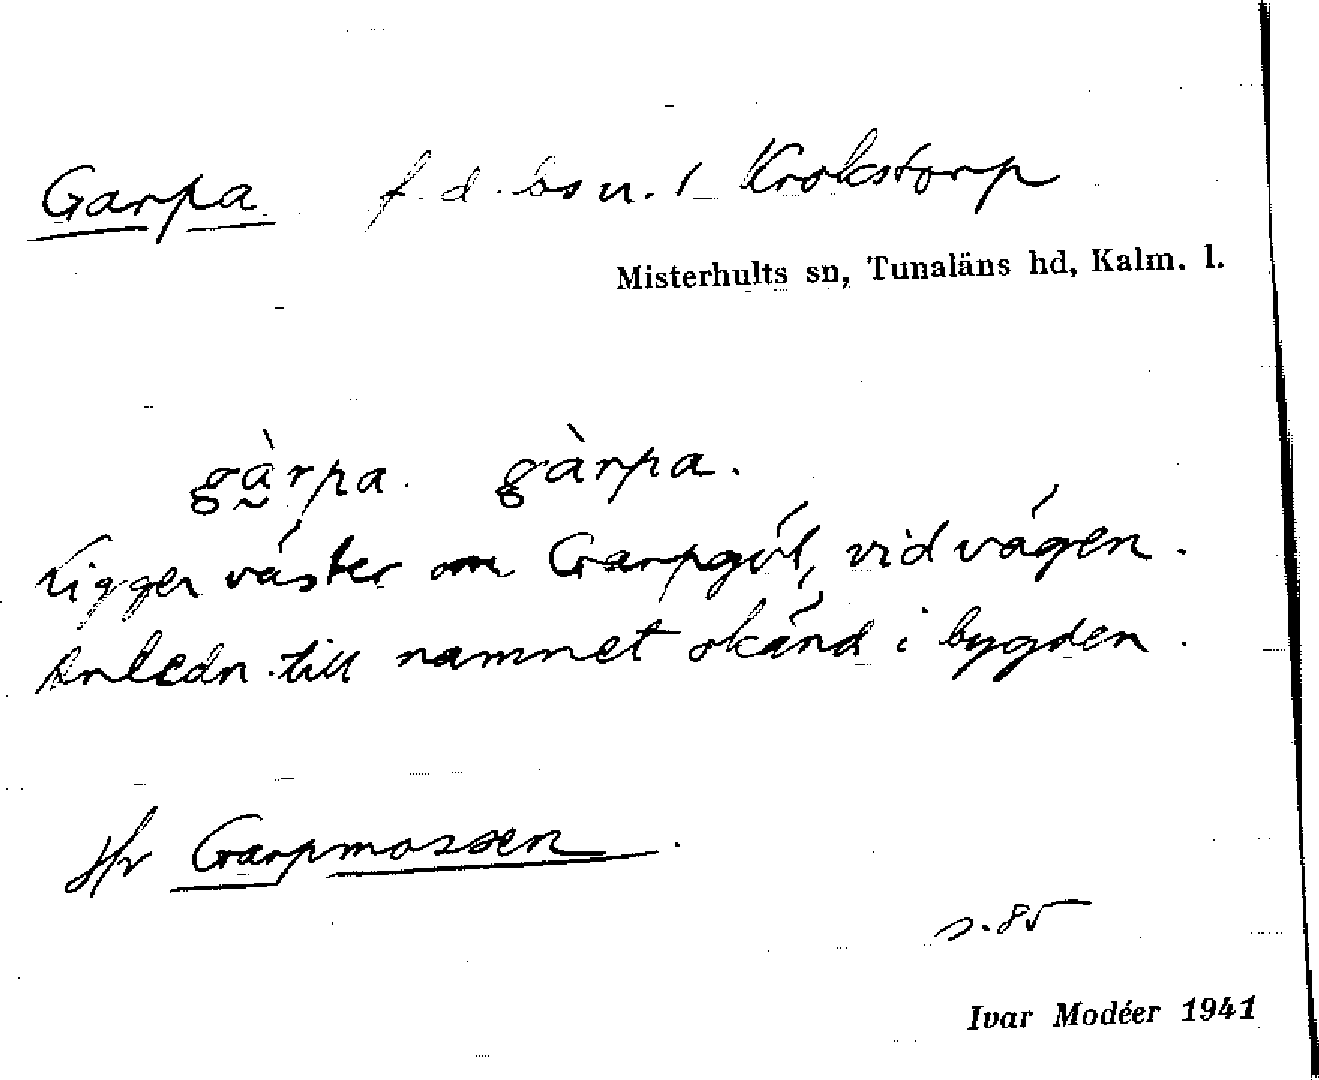 Garpa f. d. bs u. 1 Krokstorp
Misterhults sn, Tunaläns hd, Kalm. l.
gàrpa. gàrpa.
Ligger väster om Garpgöl, vid vägen.
Anledn. till namnet okänd i bygden.
Jfr Garpmossen.
s. 85
Ivar Modéer 1941